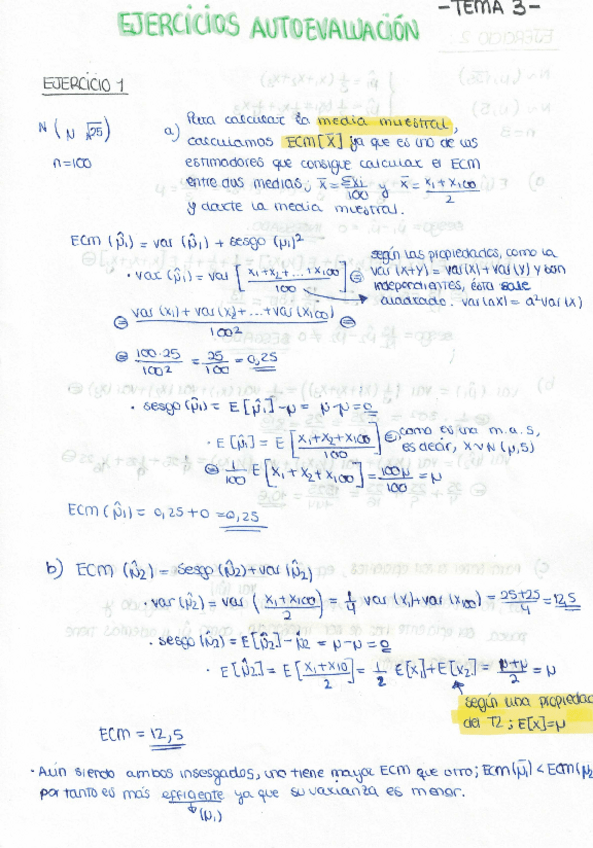 - TEMA 3 -
EJERCICIOS AUTOEVALUACIÓN
EJERCICIO 1
N (N √25)
n=100
a) Para calcular la media muestral,
calculamos ECM[X̄] ya que es uno de los
estimadores que consigue calcular el ECM
entre dos medias; X̄ = Σxi/100 y X̄ = (x1 + x100)/2
y darte la media muestral.
ECM (μ̂1) = var (μ̂1) + sesgo (μ1)²
· var (μ̂1) = var [(x1+x2+...+x100)/100] =
según las propiedades, como la
var (x+y) = var(x) + var(y) y son
independientes, ésta sale
cuadrado. var(ax) = a² var(x)
= (var(x1) + var(x2) + ... + var(x100))/100² =
= 100·25/100² = 25/100 = 0,25
· sesgo (μ̂1) = E[μ̂1] - μ = μ - μ = 0
· E[μ̂1] = E[(x1+x2+x100)/100] = como es una m.a.s,
es decir, X∼N(μ,5)
= 1/100 E[x1+x2+x100] = 100μ/100 = μ
ECM (μ̂1) = 0,25 + 0 = 0,25
b) ECM (μ̂2) = sesgo (μ̂2) + var (μ̂2)
· var (μ̂2) = var ((x1+x100)/2) = 1/4 var (x1) + var (x100) = (25+25)/4 = 12,5
· sesgo (μ̂2) = E[μ̂2] - μ̂2 = μ - μ = 0
· E[μ̂2] = E[(x1+x10)/2] = 1/2 E[x1] + E[x2] = (μ+μ)/2 = μ
según una propiedad
del T2; E[x] = μ
ECM = 12,5
· Aún siendo ambos insesgados, uno tiene mayor ECM que otro; ECM(μ̂1) < ECM(μ2
por tanto es más eficiente ya que su varianza es menor.
(μ1)